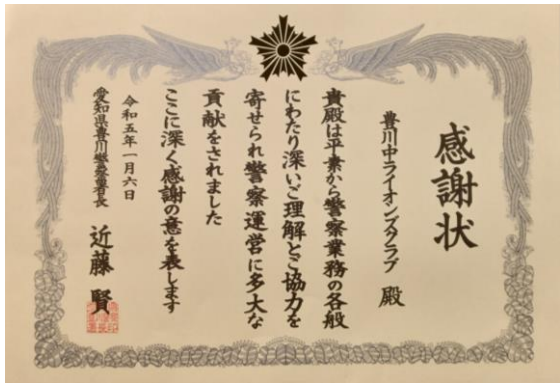 感謝状
豊川中ライオンズクラブ 殿
貴殿は平素から警察業務の各般
にわたり深いご理解とご協力を
寄せられ警察運営に多大な
貢献をされました
ここに深く感謝の意を表します
令和五年一月六日
愛知県豊川警察署長 近藤 賢